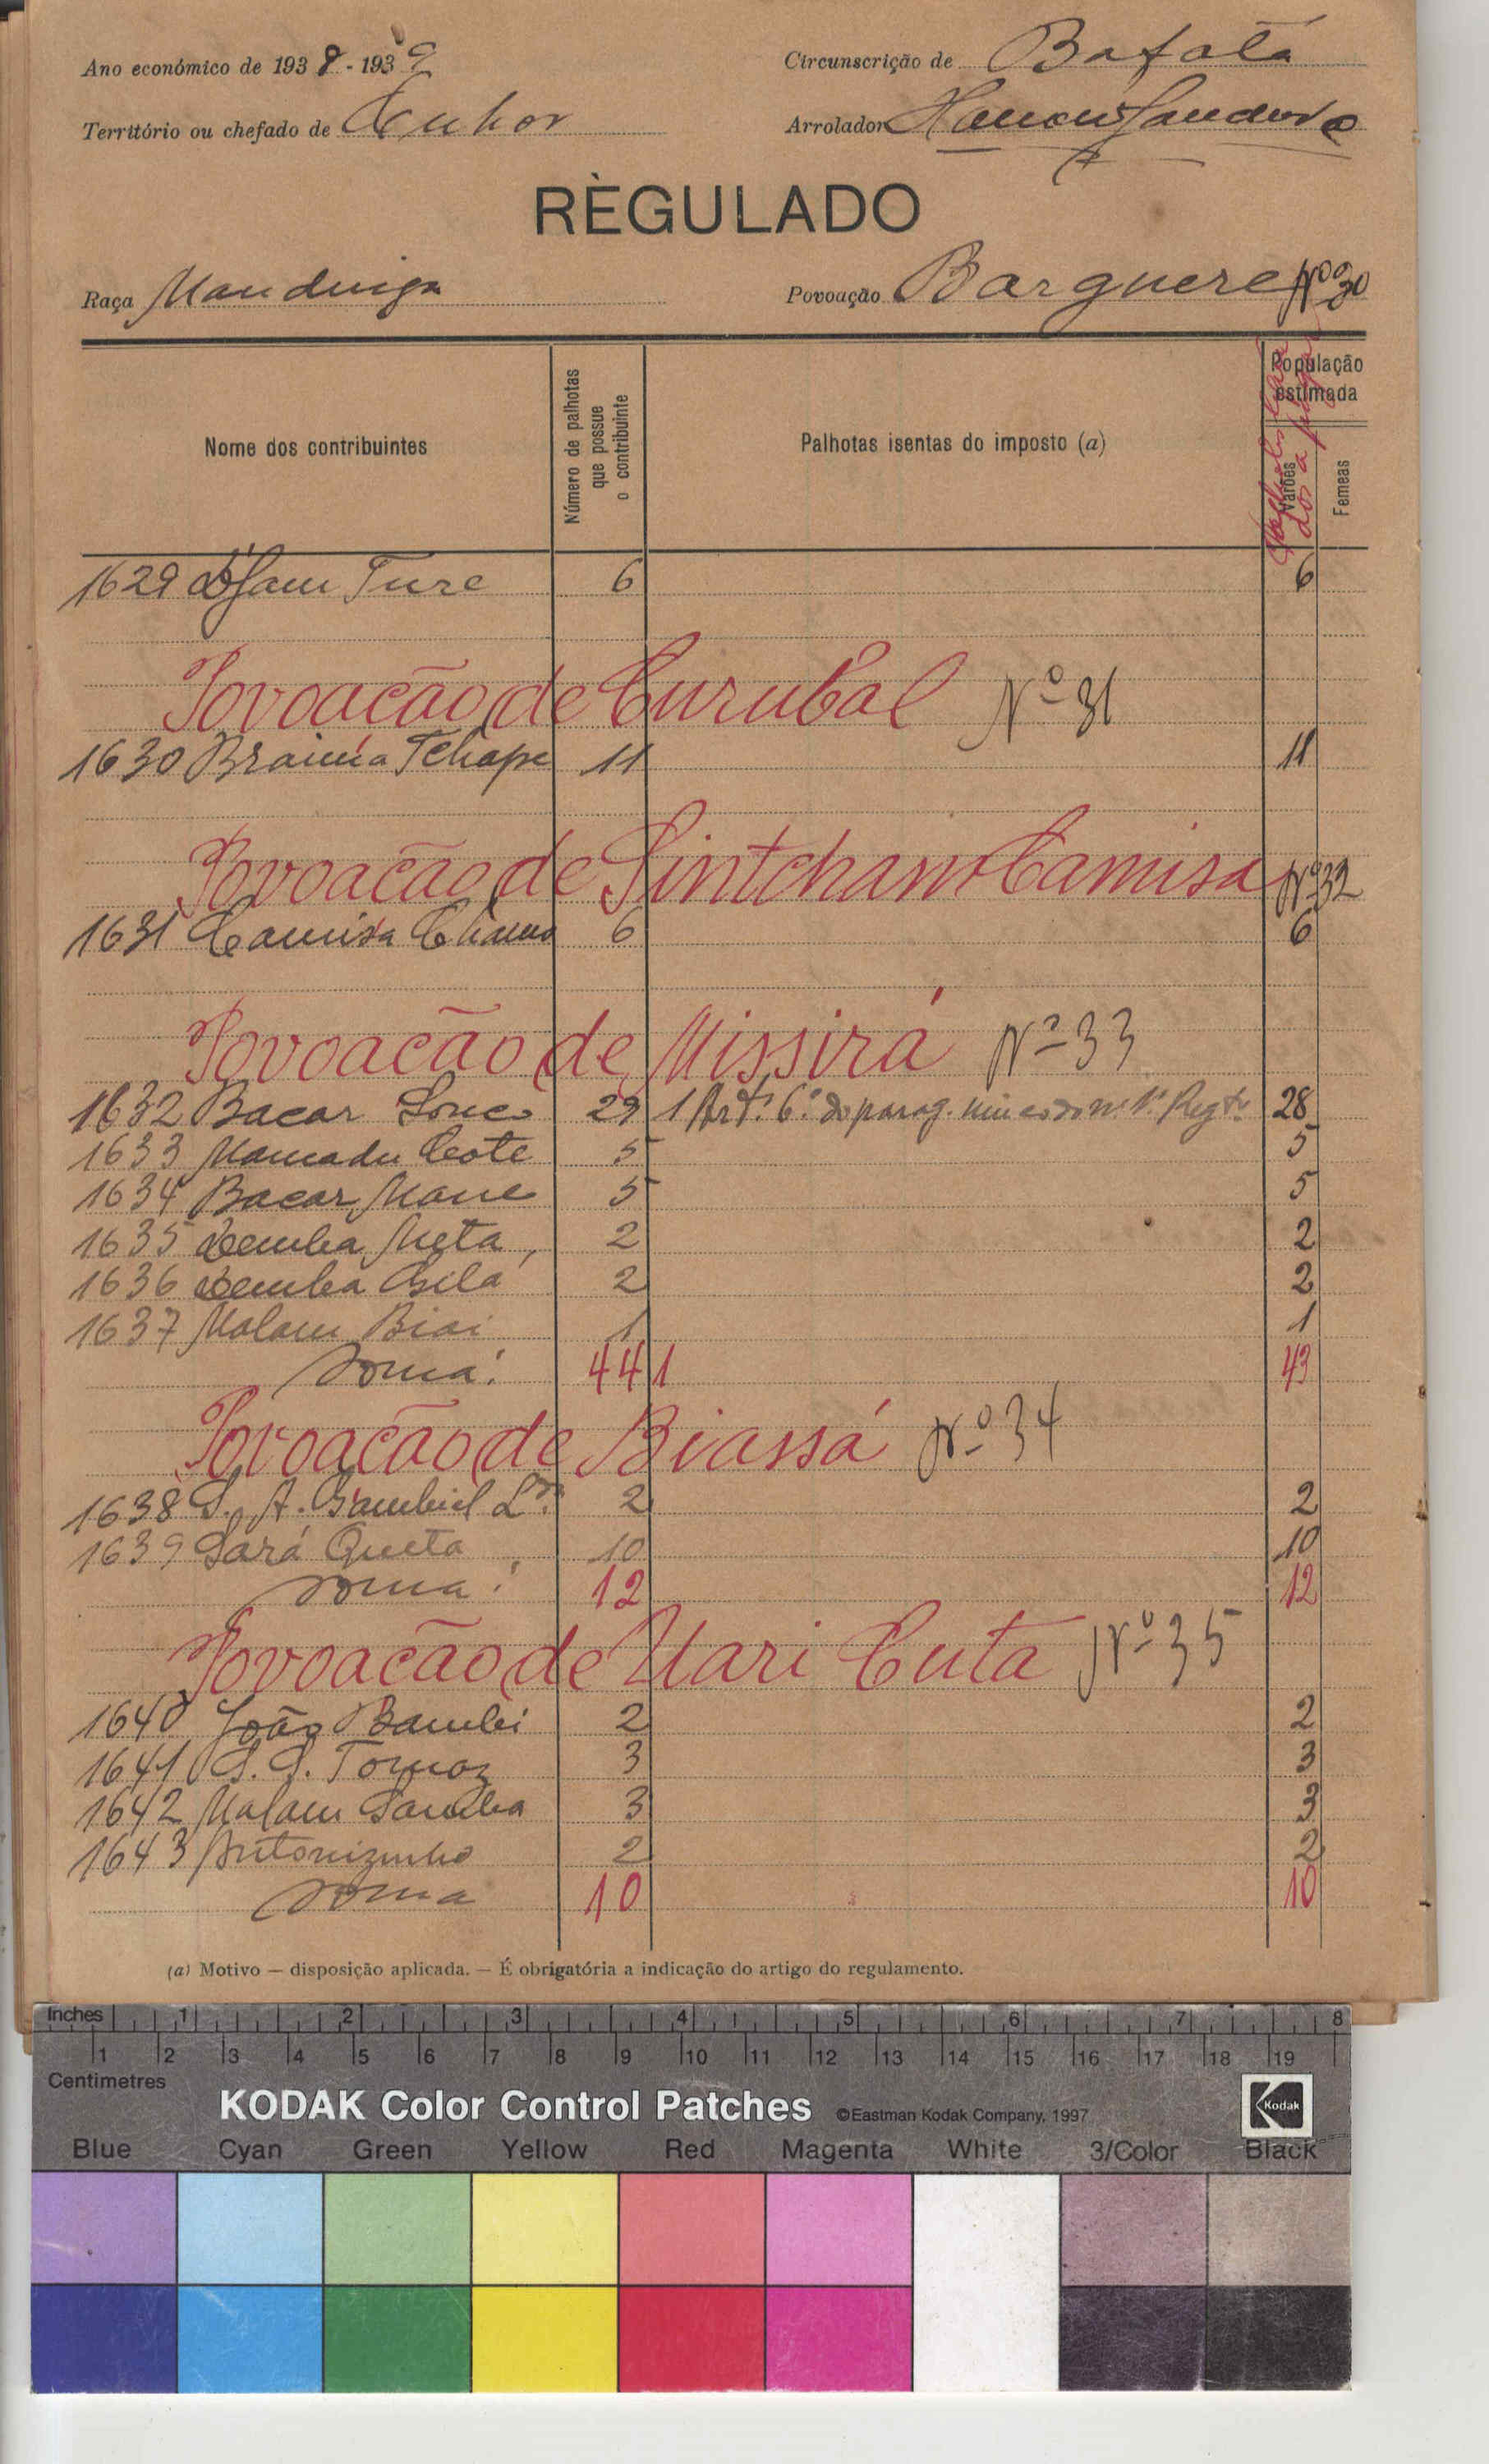 Ano económico de 1938-1939
Circunscrição de Bafatá
Território ou chefado de Cuhor
Arrolador
RÈGULADO
Raça Mandinga
Povoação Barguere Nº 30
Nome dos contribuintes
Número de palhotas que possue o contribuinte
Palhotas isentas do imposto (a)
População estimada
Varões
Femeas
1629 Ture 6 6
Povoação de Curubal Nº 31
1630 Braima Tchape 11 11
Povoação de Sintcham Camisa Nº 32
1631 Camisa 6 6
Povoação de Missirá Nº 33
1632 Bacar Sonco 29 1 Artº 6º do parag. 28
1633 Mamadu Cote 5 5
1634 Bacar Mane 5 5
1635 Demba Meta 2 2
1636 Demba 2 2
1637 Malam Biai 1 1
Soma: 44 1 43
Povoação de Biassá Nº 34
1638 S. A. Gambiel Lda. 2 2
1639 Sará Queta 10 10
Soma: 12 12
Povoação de Uari Cuta Nº 35
1640 João Bambei 2 2
1641 S. S. Tomaz 3 3
1642 Malam Samba 3 3
1643 Antonizinho 2 2
Soma 10 10
(a) Motivo — disposição aplicada. — É obrigatória a indicação do artigo do regulamento.
Inches 1 2 3 4 5 6 7 8
1 2 3 4 5 6 7 8 9 10 11 12 13 14 15 16 17 18 19
Centimetres
KODAK Color Control Patches ©Eastman Kodak Company, 1997 Kodak
Blue Cyan Green Yellow Red Magenta White 3/Color Black